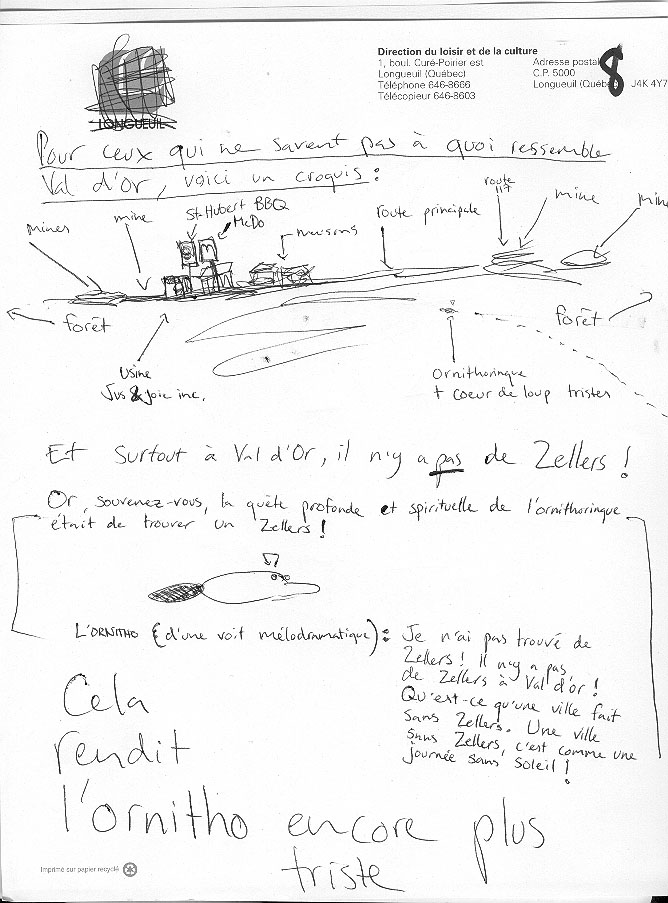 LONGUEUIL
Direction du loisir et de la culture
1, boul. Curé-Poirier est
Longueuil (Québec)
Téléphone 646-8666
Télécopieur 646-8603
Adresse postal
C.P. 5000
Longueuil (Québec) J4K 4Y7
8
Pour ceux qui ne savent pas à quoi ressemble
Val d'or, voici un croquis :
mines
mine
St-Hubert BBQ
McDo
maisons
route principale
route
117
mine
mine
forêt
forêt
Usine
Jus & Joie inc.
Ornithorinque
+ coeur de loup tristes
Et surtout à Val d'Or, il n'y a pas de Zellers !
Or, souvenez-vous, la quête profonde et spirituelle de l'ornithoringue
était de trouver un Zellers !
L'ORNITHO (d'une voit mélodramatique) :
Je n'ai pas trouvé de
Zellers ! Il n'y a pas
de Zellers à Val d'or !
Qu'est-ce qu'une ville fait
sans Zellers. Une ville
sans Zellers, c'est comme une
journée sans soleil !
Cela
rendit
l'ornitho encore plus
triste
Imprimé sur papier recyclé